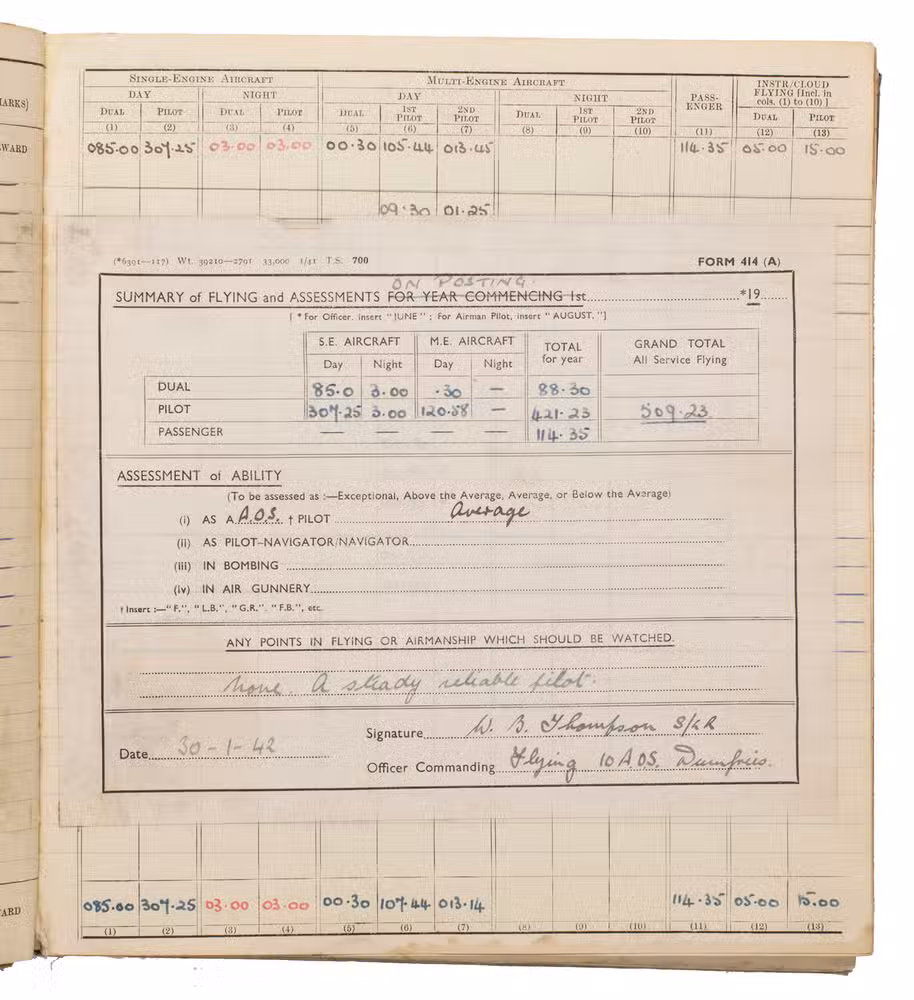 ARKS)
WARD
ARD
SINGLE-ENGINE AIRCRAFT MULTI-ENGINE AIRCRAFT PASS-ENGER INSTR/CLOUD FLYING [Incl. in cols. (1) to (10)]
DAY NIGHT DAY NIGHT
DUAL PILOT DUAL PILOT DUAL 1ST PILOT 2ND PILOT DUAL 1ST PILOT 2ND PILOT DUAL PILOT
(1) (2) (3) (4) (5) (6) (7) (8) (9) (10) (11) (12) (13)
085.00 307.25 03.00 03.00 00.30 105.44 013.45 114.35 05.00 15.00
09.30 01.25
(*6391—117) Wt. 39210—2791 33,000 1/41 T.S. 700 FORM 414 (A)
ON POSTING.
SUMMARY of FLYING and ASSESSMENTS FOR YEAR COMMENCING 1st *19
[ *For Officer, insert "JUNE" ; For Airman Pilot, insert "AUGUST."]
S.E. AIRCRAFT M.E. AIRCRAFT TOTAL for year GRAND TOTAL All Service Flying
Day Night Day Night
DUAL 85.0 3.00 .30 — 88.30
PILOT 307.25 3.00 120.58 — 421.23 509.23
PASSENGER — — — — 114.35
ASSESSMENT of ABILITY
(To be assessed as :—Exceptional, Above the Average, Average, or Below the Average)
(i) AS A A.O.S. † PILOT Average
(ii) AS PILOT-NAVIGATOR/NAVIGATOR
(iii) IN BOMBING
(iv) IN AIR GUNNERY
† Insert :—"F.", "L.B.", "G.R.", "F.B.", etc.
ANY POINTS IN FLYING OR AIRMANSHIP WHICH SHOULD BE WATCHED.
None. A steady reliable pilot.
Signature W. B. Thompson S/LR
Date 30-1-42
Officer Commanding Flying 10 A OS, Dumfries.
085.00 307.25 03.00 03.00 00.30 107.44 013.14 114.35 05.00 15.00
(1) (2) (3) (4) (5) (6) (7) (8) (9) (10) (11) (12) (13)